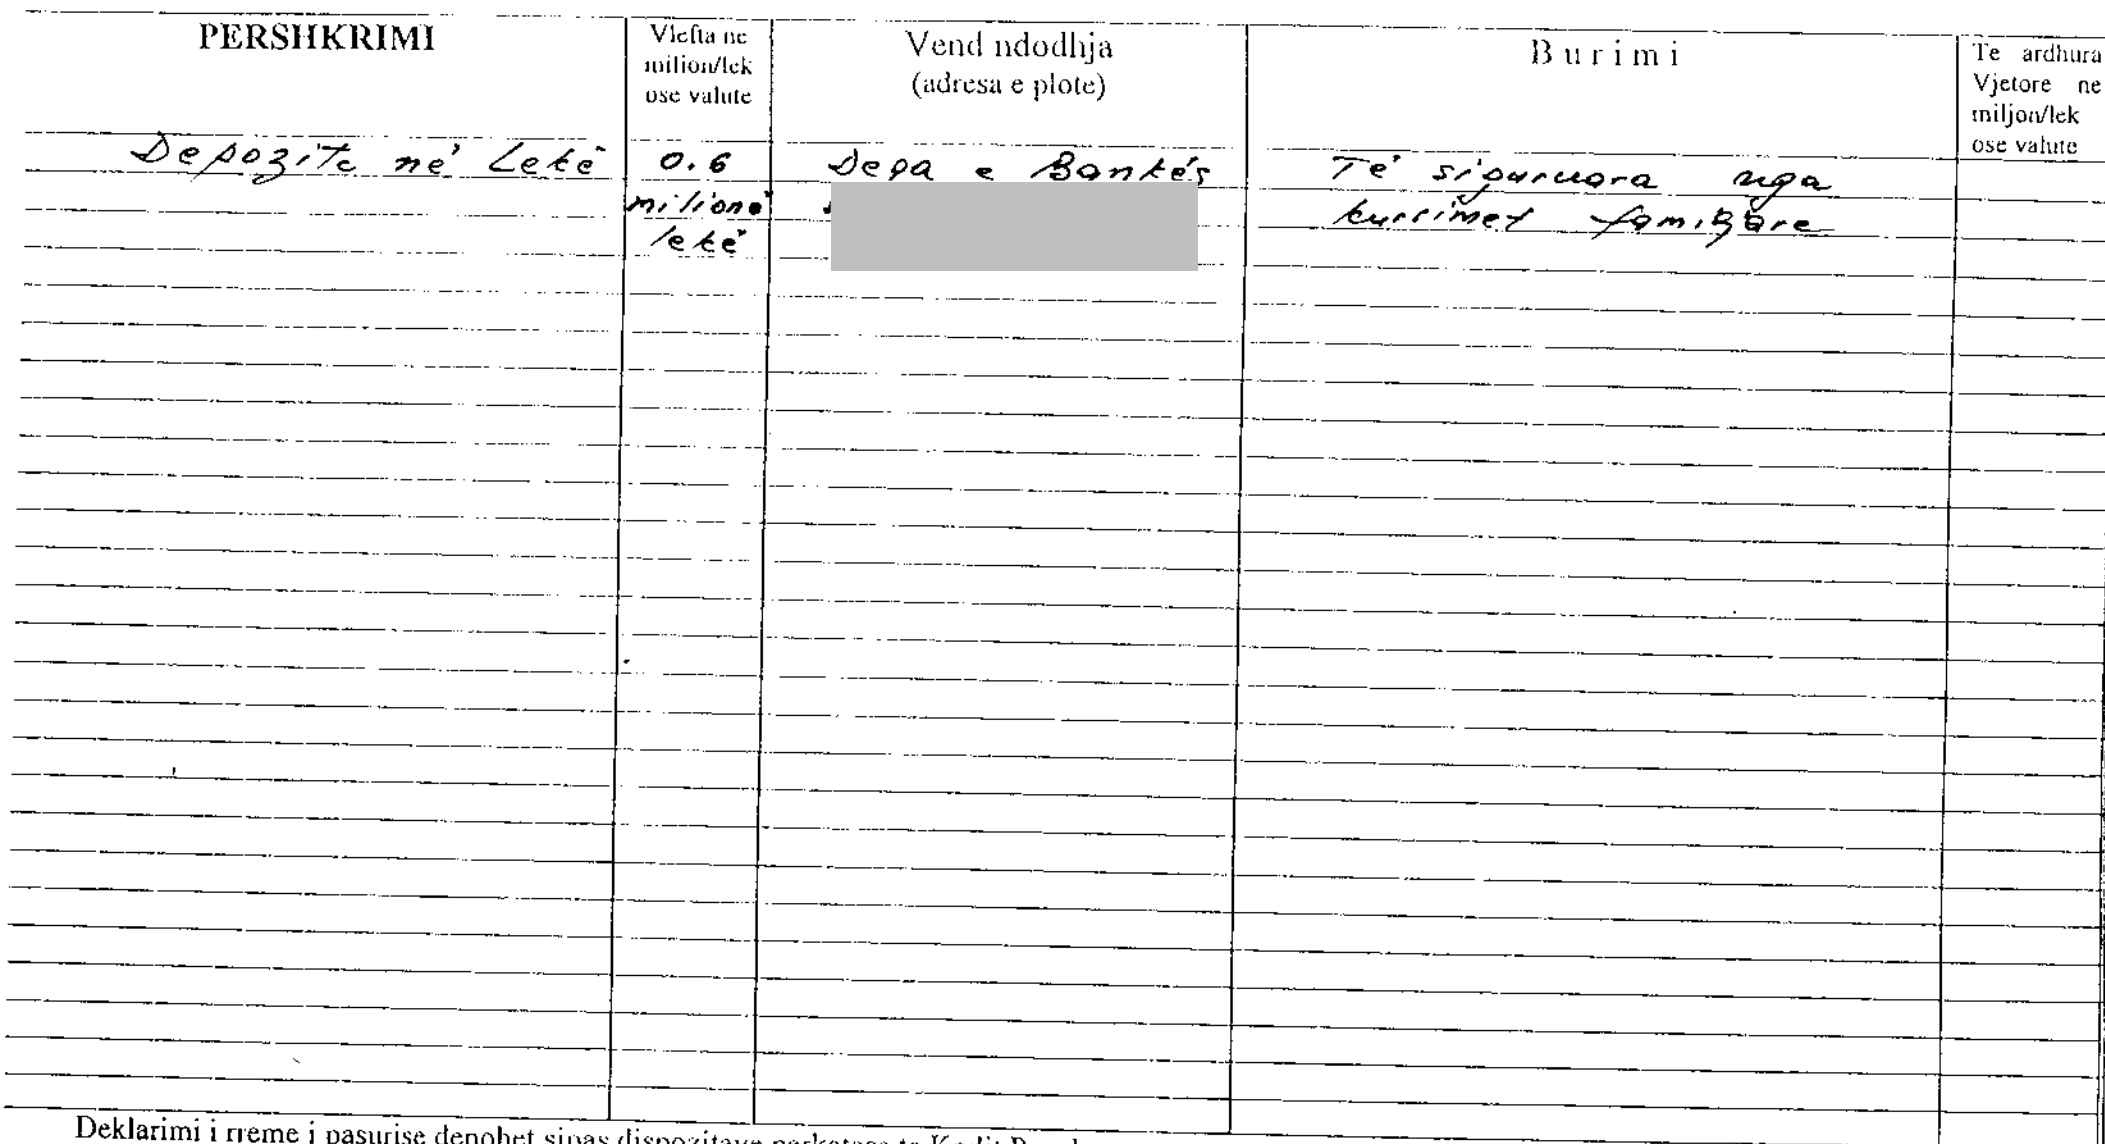 PERSHKRIMI
Vlefta ne
milion/lek
ose valute
Vend ndodhja
(adresa e plote)
Burimi
Te ardhura
Vjetore ne
miljon/lek
ose valute
Depozite në Lekë
0.6
milionë
lekë
Dega e Bankës
Të siguruara nga
kursimet familjare
Deklarimi i rreme i pasurise denohet sipas dispozitave perkatese te Kodit